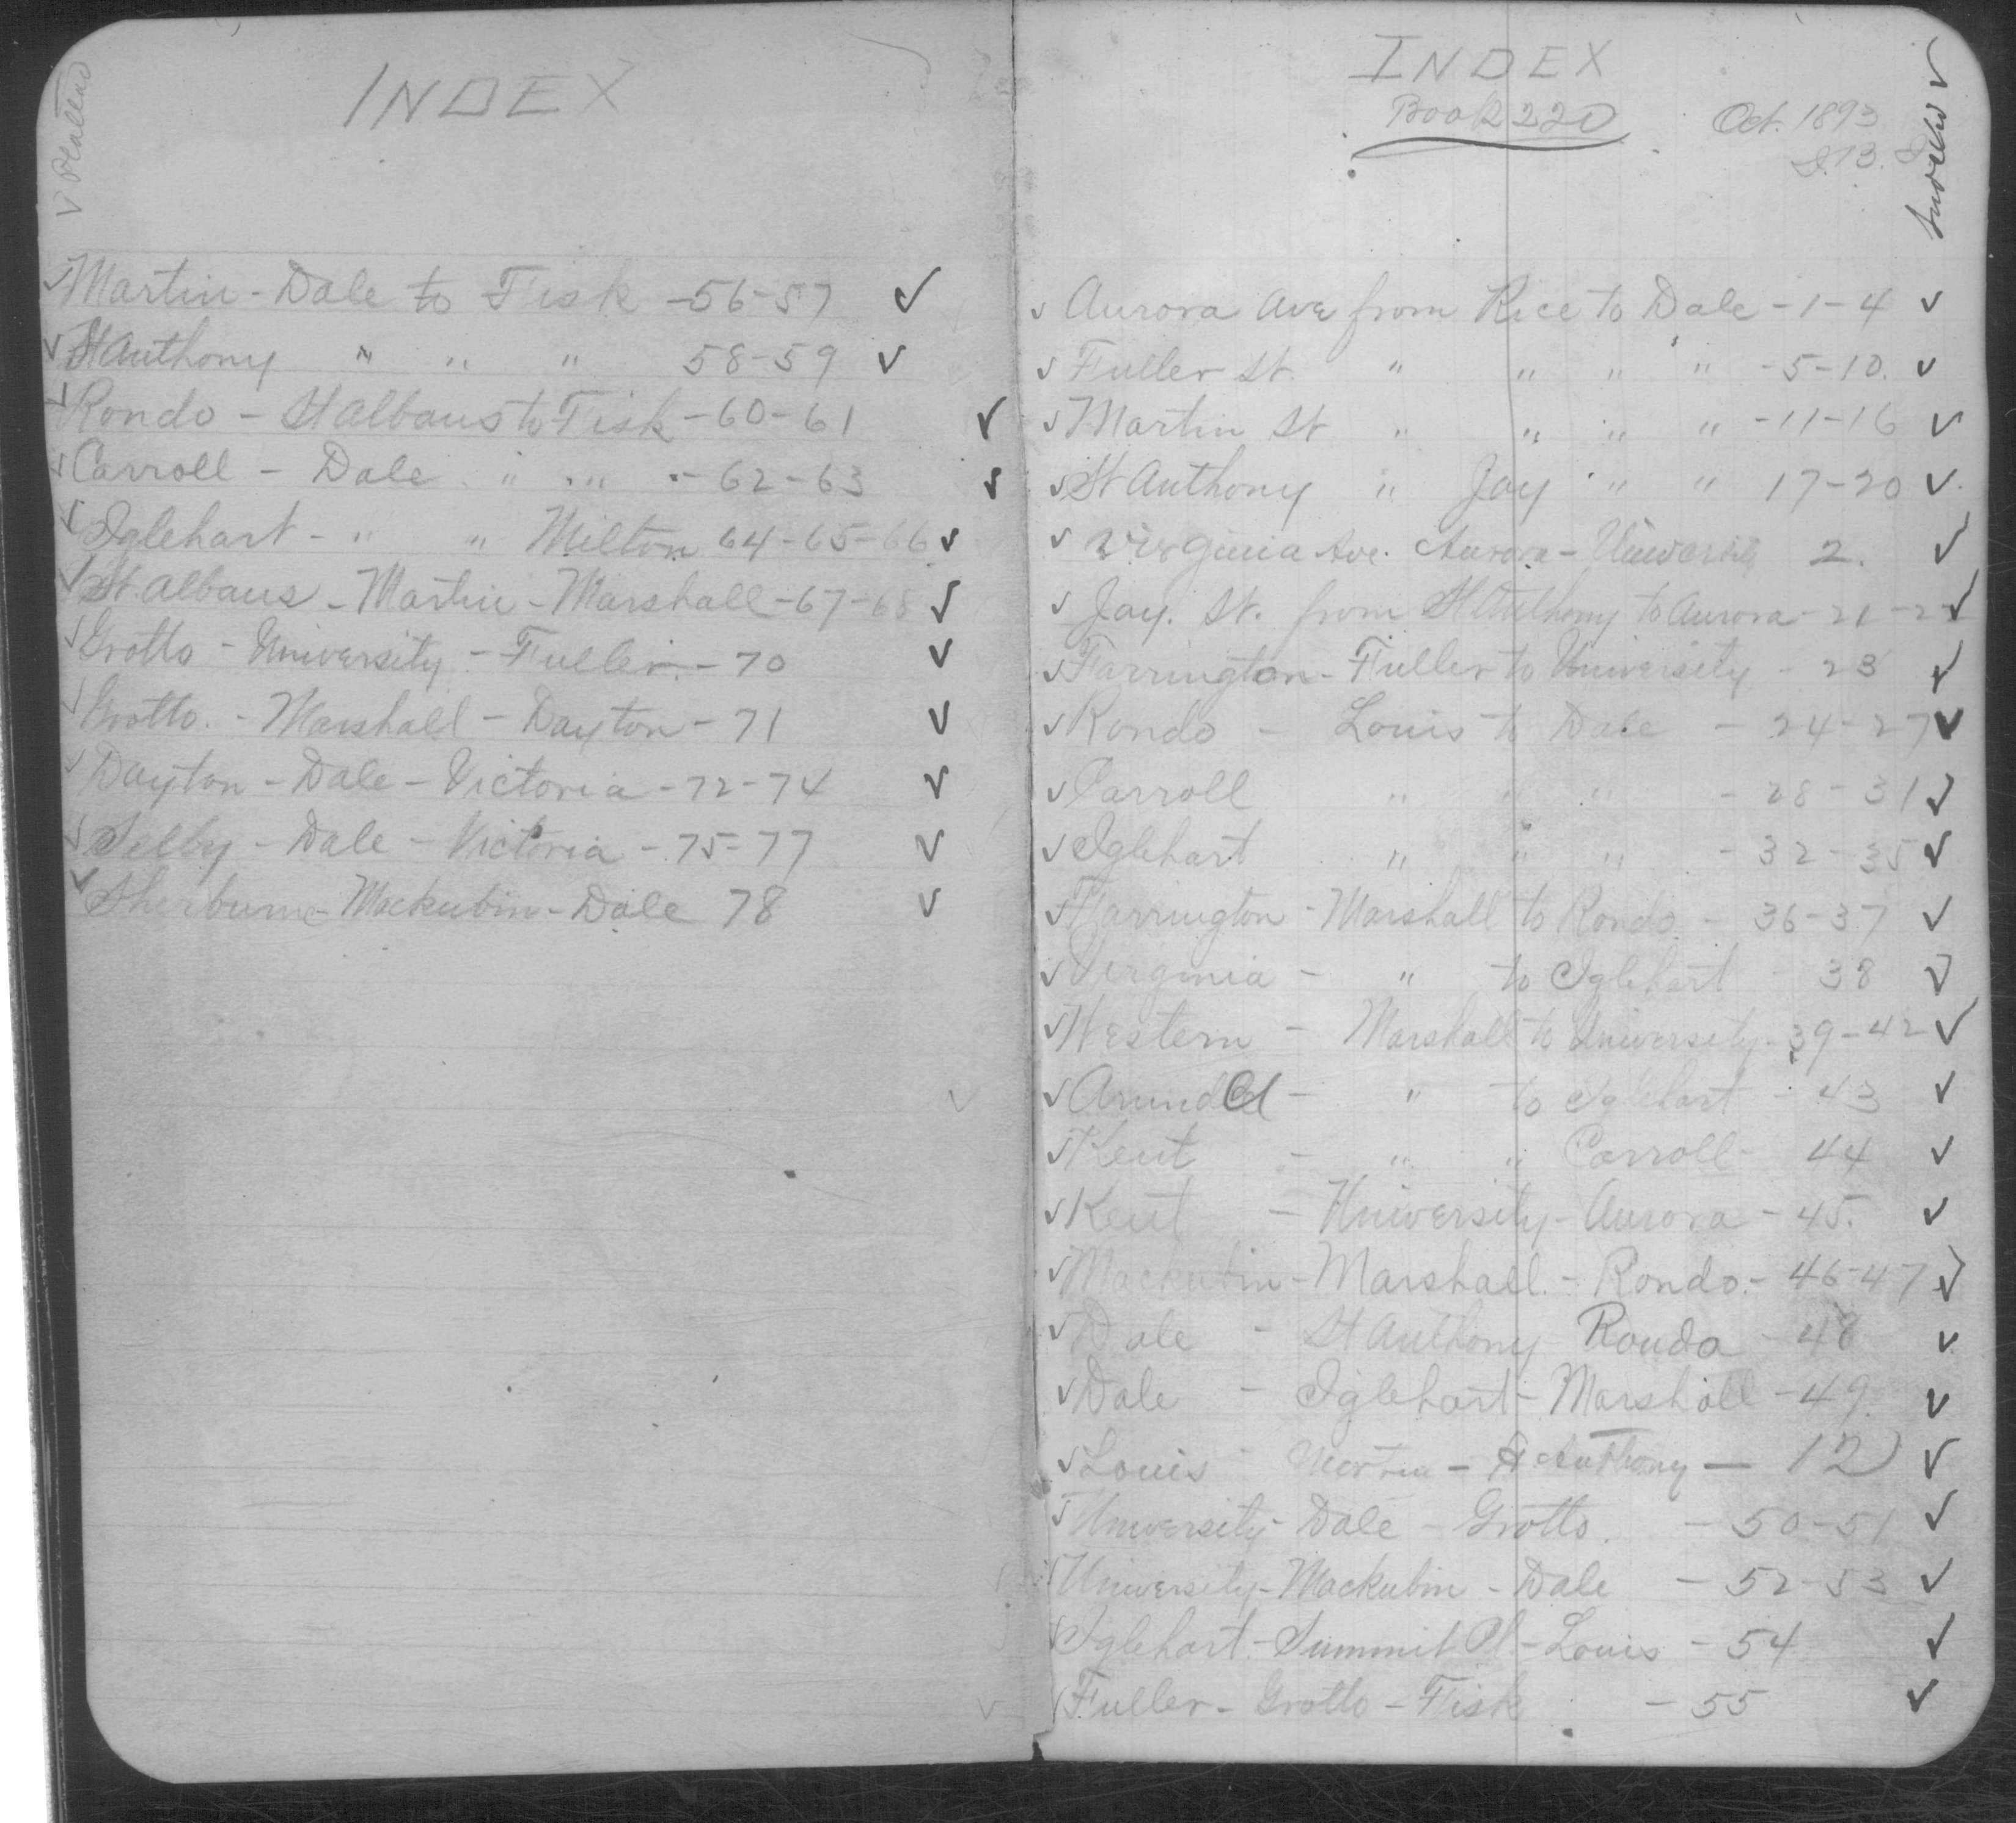 INDEX
✓ Platted
✓ Martin - Dale to Fisk - 56-57 ✓
✓ St Anthony " " " 58-59 ✓
✓ Rondo - St Albans to Fisk - 60-61 ✓
✓ Carroll - Dale " " - 62-63 ✓
✓ Iglehart - " " Milton 64-65-66 ✓
✓ St. Albans - Martin - Marshall - 67-68 ✓
✓ Grotto - University - Fuller - 70 ✓
✓ Grotto. - Marshall - Dayton - 71 ✓
✓ Dayton - Dale - Victoria - 72-74 ✓
✓ Selby - Dale - Victoria - 75-77 ✓
✓ Sherburne - Mackubin - Dale 78 ✓
INDEX
Book 220
Oct. 1893
✓ Aurora Ave from Rice to Dale - 1-4 ✓
✓ Fuller St. " " " " - 5-10. ✓
✓ Martin St " " " " - 11-16 ✓
✓ St Anthony " Jay " " 17-20 ✓
✓ Virginia Ave. Aurora - University 2. ✓
✓ Jay. St. from St Anthony to Aurora - 21-2 ✓
✓ Farrington - Fuller to University - 23 ✓
✓ Rondo - Louis to Dale - 24-27 ✓
✓ Carroll " " " - 28-31 ✓
✓ Iglehart " " " - 32-35 ✓
✓ Farrington - Marshall to Rondo - 36-37 ✓
✓ Virginia - " to Iglehart 38 ✓
✓ Western - Marshall to University - 39-42 ✓
✓ Arundel - " to Iglehart - 43 ✓
✓ Kent - " " Carroll - 44 ✓
✓ Kent - University - Aurora - 45. ✓
✓ Mackubin - Marshall. - Rondo. - 46-47 ✓
✓ Dale - St Anthony Rondo - 48 ✓
✓ Dale - Iglehart - Marshall - 49. ✓
✓ Louis - Martin - St Anthony - 12 ✓
✓ University - Dale - Grotto. - 50-51 ✓
✓ University - Mackubin - Dale - 52-53 ✓
✓ Iglehart. - Summit Pl - Louis - 54 ✓
✓ Fuller - Grotto - Fisk - 55 ✓